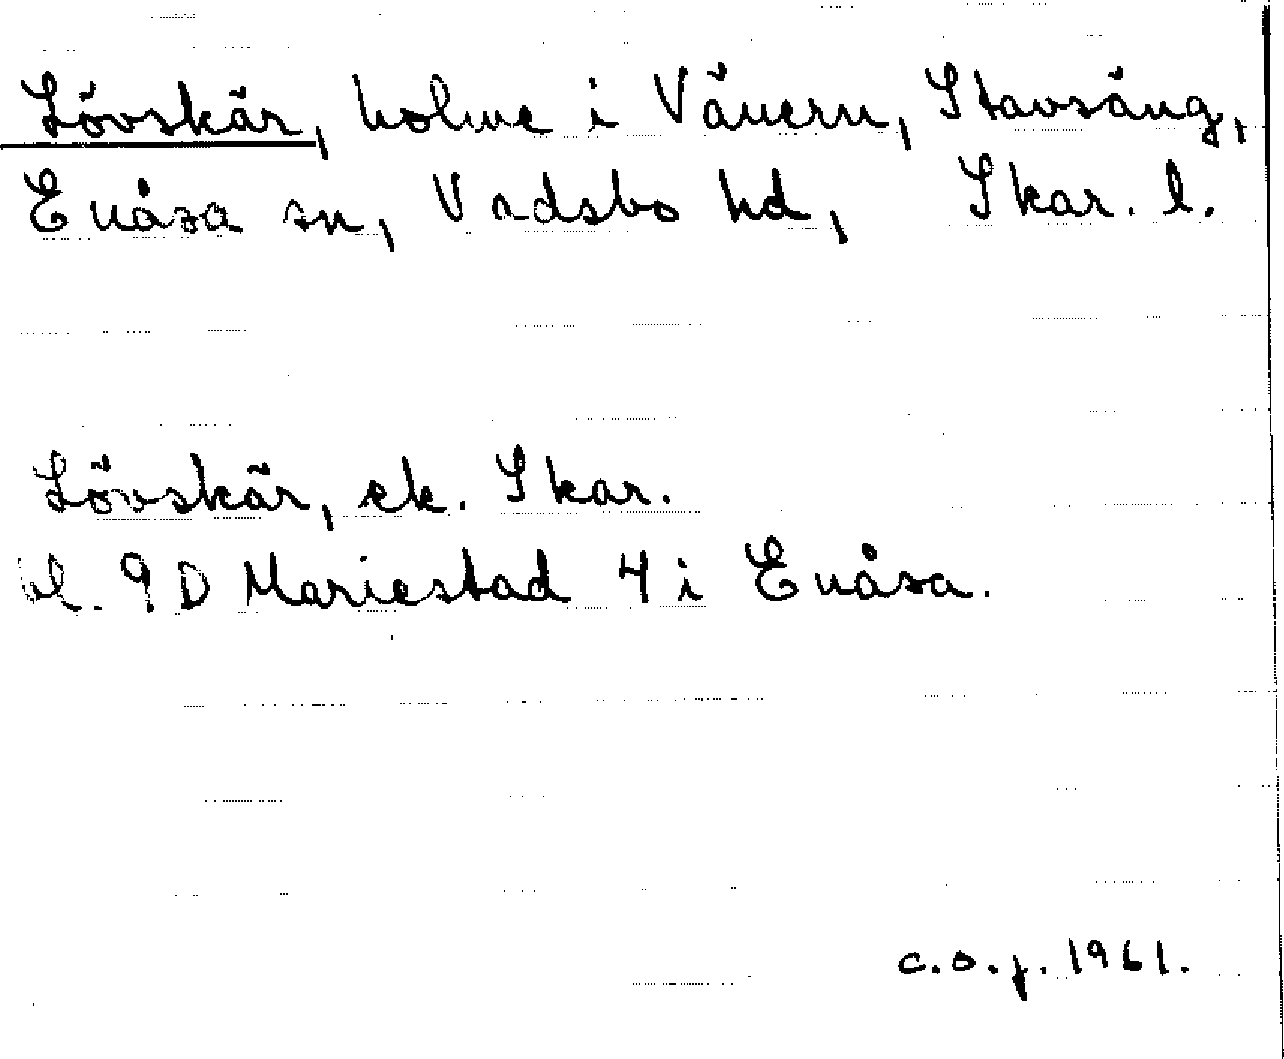 Lövskär, holme i Vänern, Stavsäng,
Enåsa sn, Vadsbo hd, Skar. l.
Lövskär, ek. Skar.
bl. 9 D Mariestad 4 i Enåsa.
c.o.j. 1961.